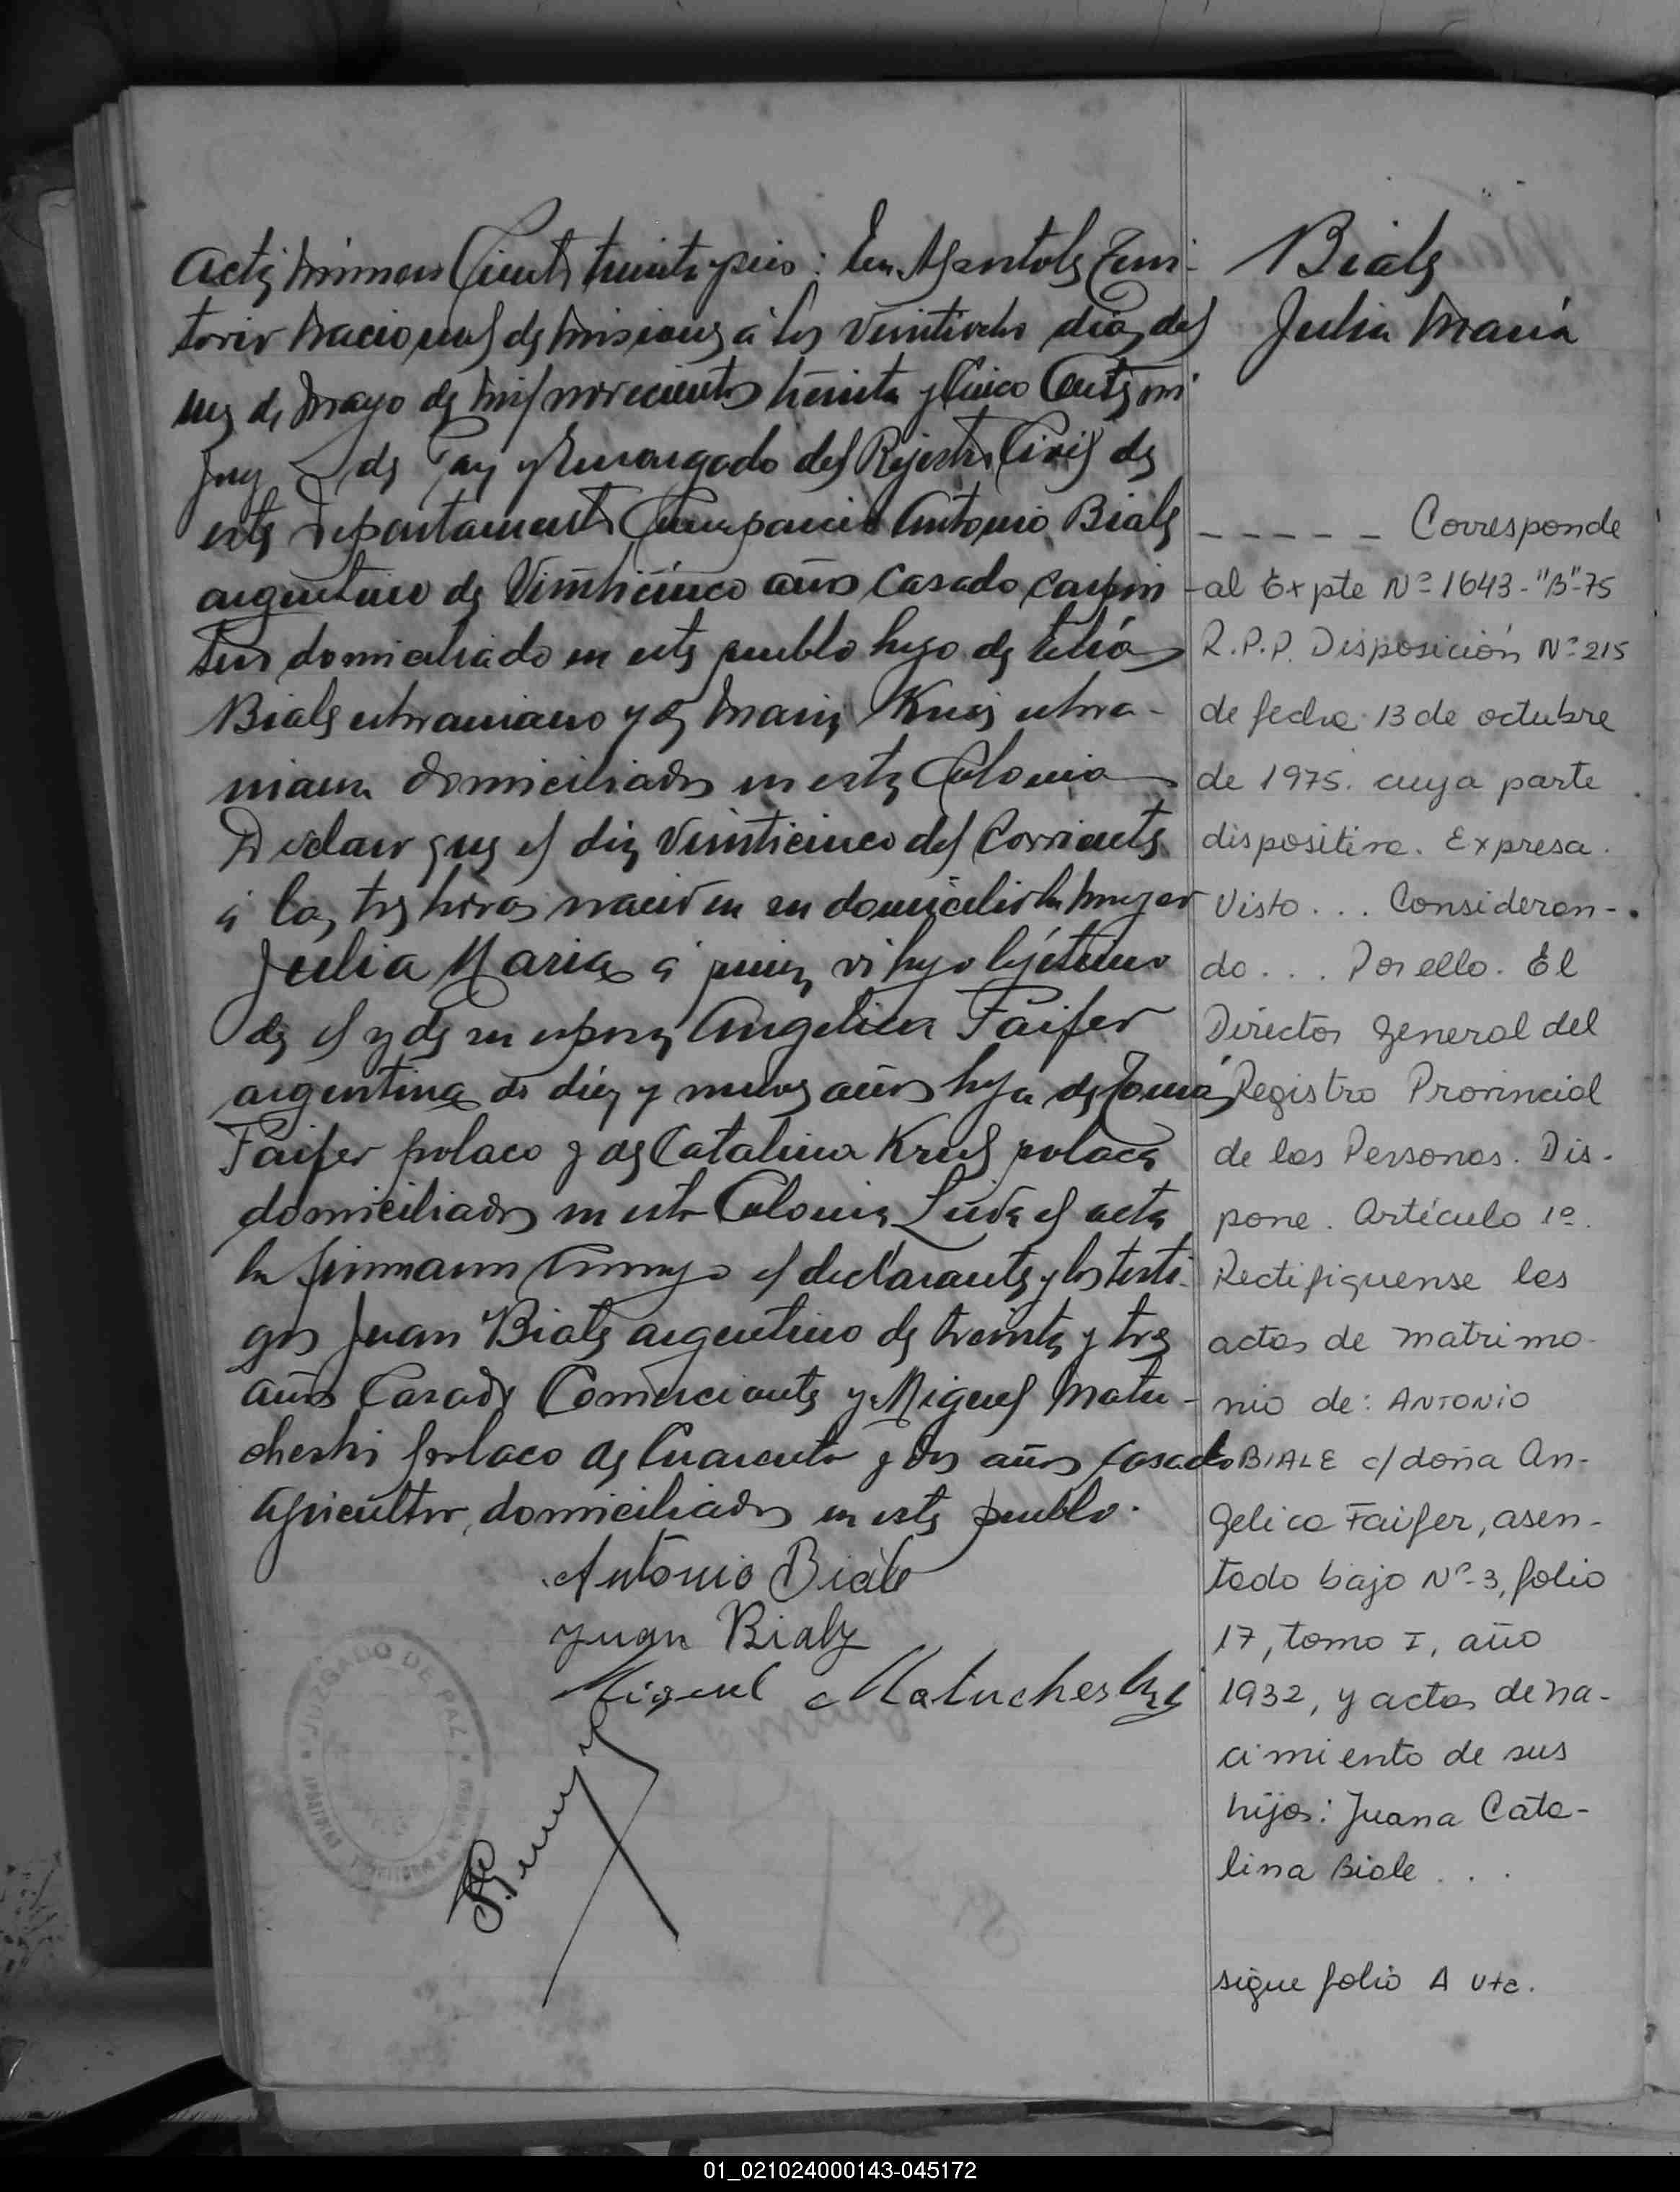 Acta número Ciento treinta y seis: En Apóstoles Terri-
torio Nacional de Misiones á los veintiocho dias del
mes de Mayo de mil novecientos treinta y Cinco Ante mi
Juez de Paz y Encargado del Rejistro Civil de
este Departamento Compareció Antonio Biale
argentino de Veinticinco años Casado Carpin
tero domiciliado en este pueblo hijo de Elías
Biale ukraniano y de Maria ukra-
niana domiciliados en esta Colonia
Declaro que el dia veinticinco del Corriente
á las tres horas nació en su domicilio la mujer
Julia Maria á quien vi hija lejitima
de el y de su esposa Angelica Faifer
argentina de diez y nueve años hija de Tomás
Faifer polaco y de Catalina Kruk polaca
domiciliados en esta Colonia Leida el acta
la firmaron Conmigo el declarante y los testi-
gos Juan Biale argentino de treinta y tres
años Casado Comerciante y Miguel Matu-
cheski polaco de Cuarenta y dos años Casado
agricultor, domiciliados en este pueblo.
Antonio Biale
Juan Bialy
Miguel Matucheski
JUZGADO DE PAZ
Biale
Julia María
_ _ _ _ _ Corresponde
al Expte Nº 1643-"B"-75
R.P.P. Disposición Nº 215
de fecha 13 de octubre
de 1975. cuya parte
dispositiva. Expresa.
Visto... Consideran-
do... Por ello. El
Director General del
Registro Provincial
de las Personas. Dis-
pone. Artículo 1º.
Rectifiquense las
actas de matrimo-
nio de: ANTONIO
BIALE c/ doña An-
gelica Faifer, asen-
tado bajo Nº 3, folio
17, tomo I, año
1932, y actas de na-
cimiento de sus
hijos: Juana Cata-
lina Biale...
sigue folio A vta.
01_021024000143-045172